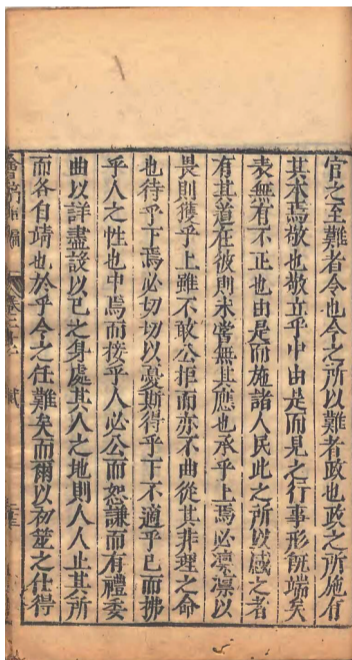 官之至難者令也令之所以難者政也政之所施有
其本焉敬也敬立乎中由是而見之行事形旣端矣
表無有不正也由是而施諸人民此之所以感之者
有其道在彼則未嘗無其應也承乎上焉必凜凜以
畏則獲乎上雖不敢公拒而亦不曲從其非理之命
也待乎下焉必切切以憂斯得乎下不適乎已而拂
乎人之性也中焉而接乎人必公而恕謙而有禮委
曲以詳盡設以已之身處其人之地則人人止其所
而各自靖也於乎令之任難矣而爾以初筮之仕得